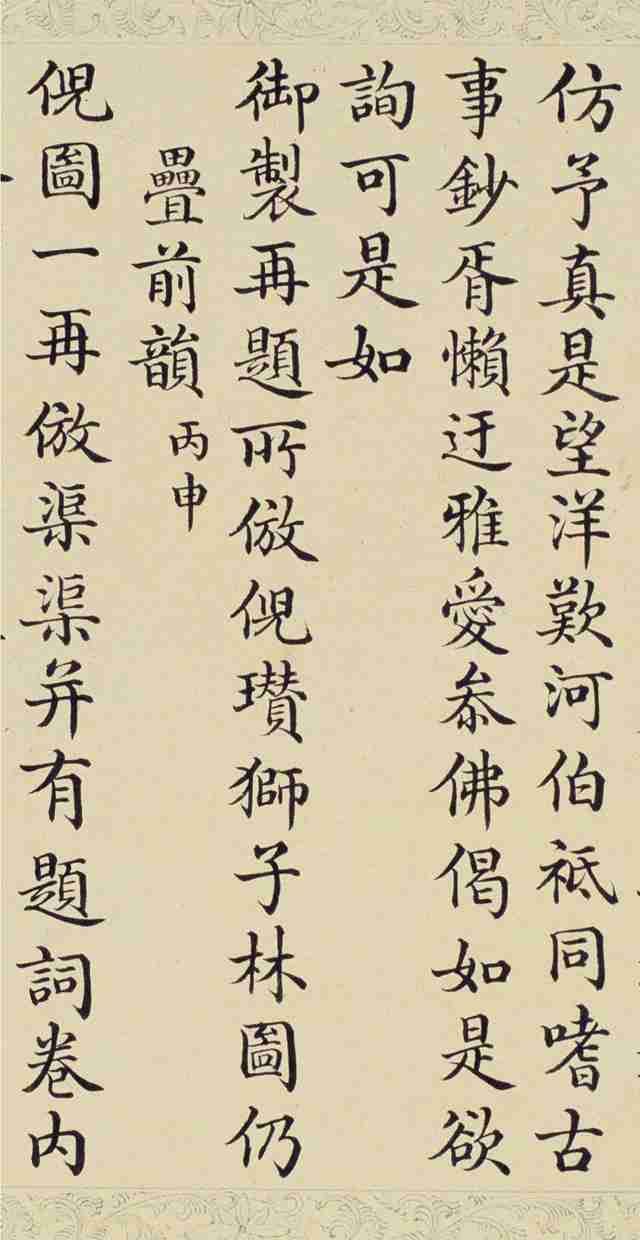 仿予真是望洋歎河伯袛同嗜古
事鈔胥懶迂雅愛叅佛偈如是欲
詢可是如
御製再題所倣倪瓚獅子林圖仍
疊前韻丙申
倪圖一再倣渠渠并有題詞卷内